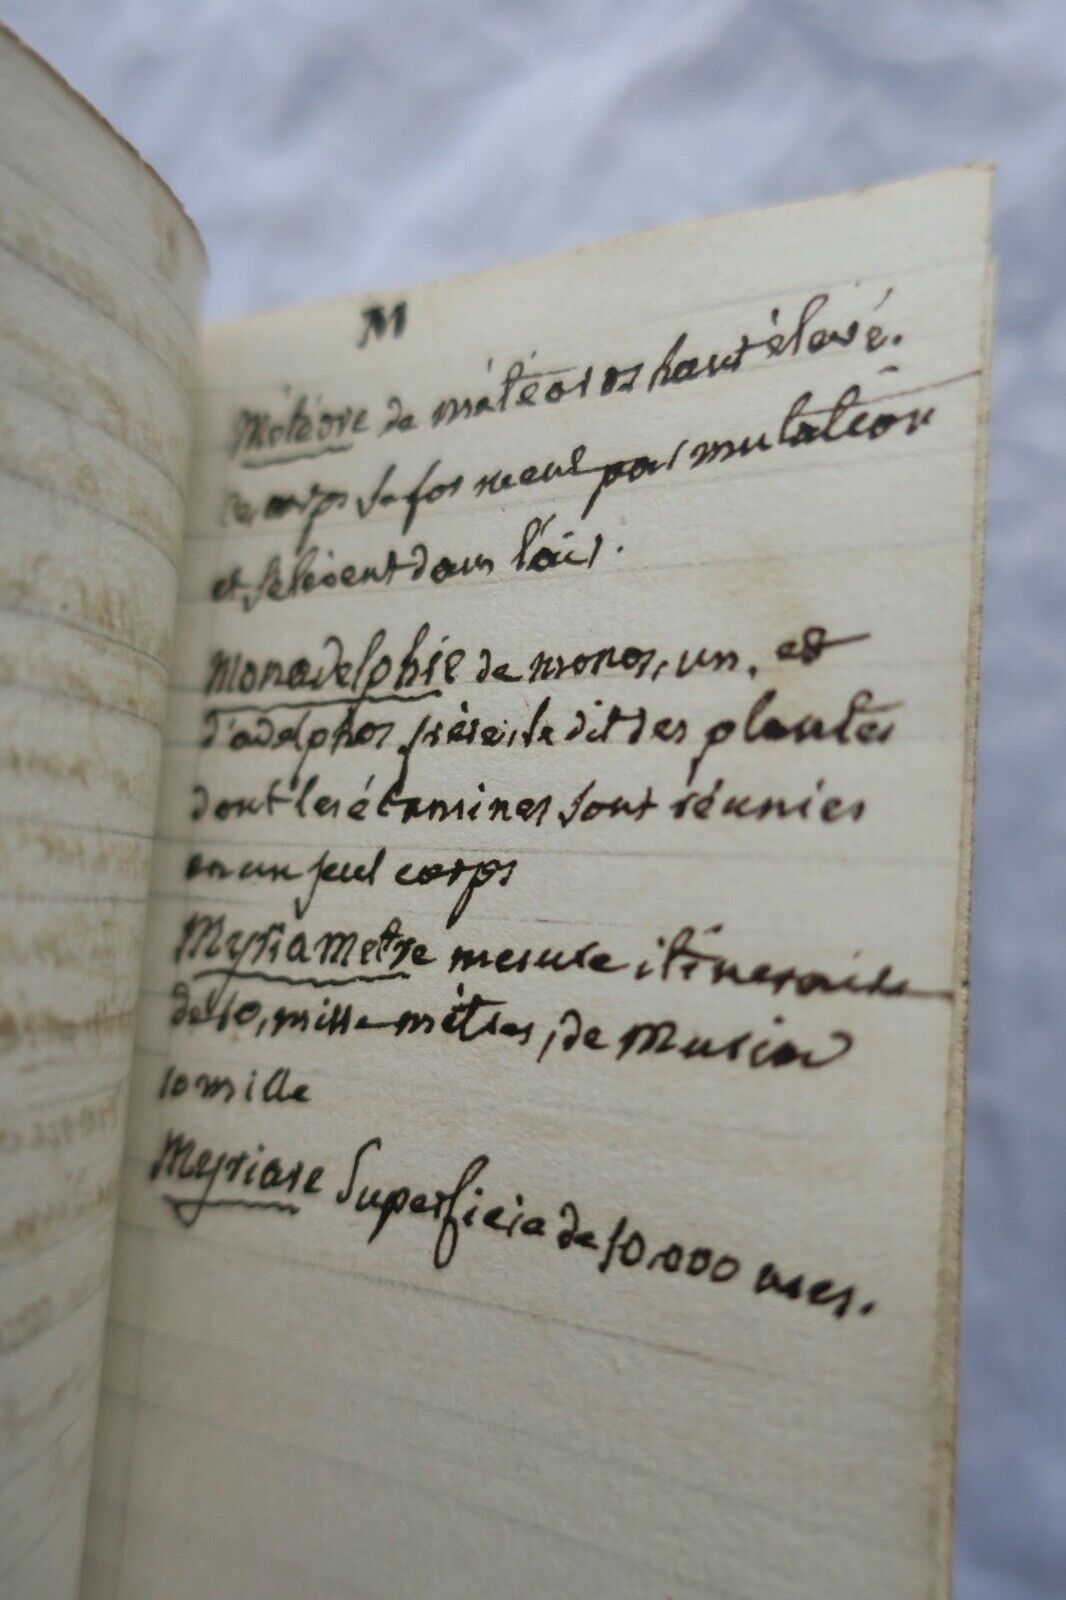 M
Météore de météoros haut élevé.
ces corps se forment par mutation
et s'élèvent dans l'air.
Monadelphie de monos, un, et
d'adelphos frère, se dit des plantes
dont les étamines sont réunies
en un seul corps
Myriametre mesure itineraire
de 10, mille mètres, de Muria
10 mille
Myriare Superficie de 10.000 ares.